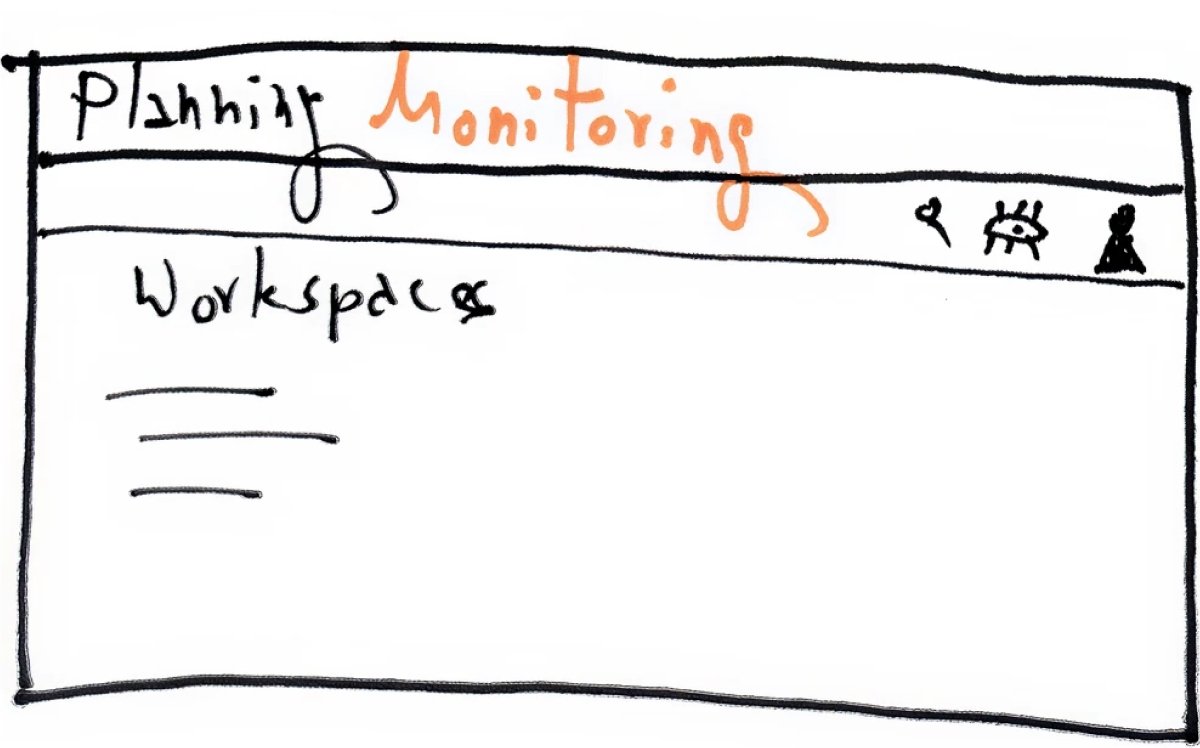 Planning Monitoring
Workspaces